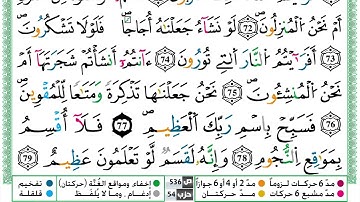 أَمْ نَحْنُ ٱلْمُنزِلُونَ 72 لَوْ نَشَآءُ جَعَلْنَٰهُ أُجَاجًا فَلَوْلَا تَشْكُرُونَ
73 أَفَرَءَيْتُمُ ٱلنَّارَ ٱلَّتِي تُورُونَ 74 ءَأَنتُمُۥٓ أَنشَأْتُمْ شَجَرَتَهَآ أَمْ
نَحْنُ ٱلْمُنشِـُٔونَ 75 نَحْنُ جَعَلْنَٰهَا تَذْكِرَةً وَمَتَٰعًا لِّلْمُقْوِينَ 76
فَسَبِّحْ بِٱسْمِ رَبِّكَ ٱلْعَظِيمِ 77 فَلَآ أُقْسِمُ
بِمَوَٰقِعِ ٱلنُّجُومِ 78 وَإِنَّهُۥ لَقَسَمٌ لَّوْ تَعْلَمُونَ عَظِيمٌ 79
مدّ 6 حركات لزوماً مدّ 2 أو 4 أو 6 جوازاً ص 536 إخفاء، ومواقع الغُنَّة (حركتان) تفخيم
مدّ مشبع 6 حركات مدّ حركتان حزب 54 إدغام، وما لا يُلفَظ قلقلة